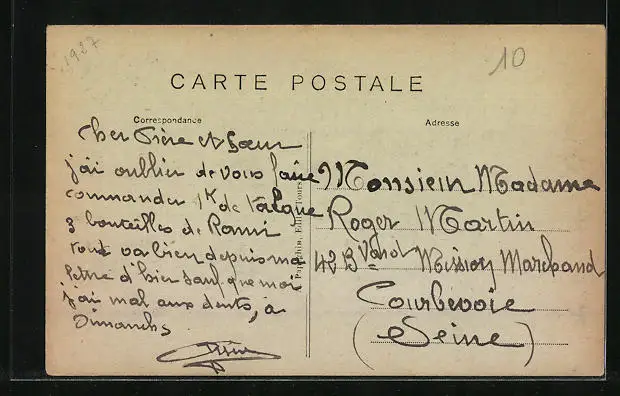 1937
10
CARTE POSTALE
Correspondance
Adresse
Cher Frère et Sœur
j'ai oublier de vous faire
commander 1K de Valque
3 bouteilles de
tout va bien depuis ma
lettre d'hier sauf que moi
j'ai mal aux dents, à
Dimanche
Monsieur Madame
Roger Martin
42 B Mission Marchand
Courbevoie
(Seine)
Edit. Tours